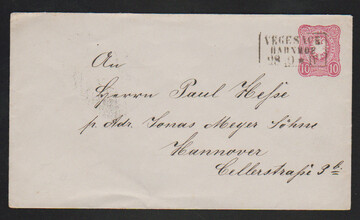 VEGESACK
BAHNHOF
10
10
An
Herrn Paul Hesse
p. Adr. Jonas Meyer Söhne
Hannover
Cellerstraße 3 b.